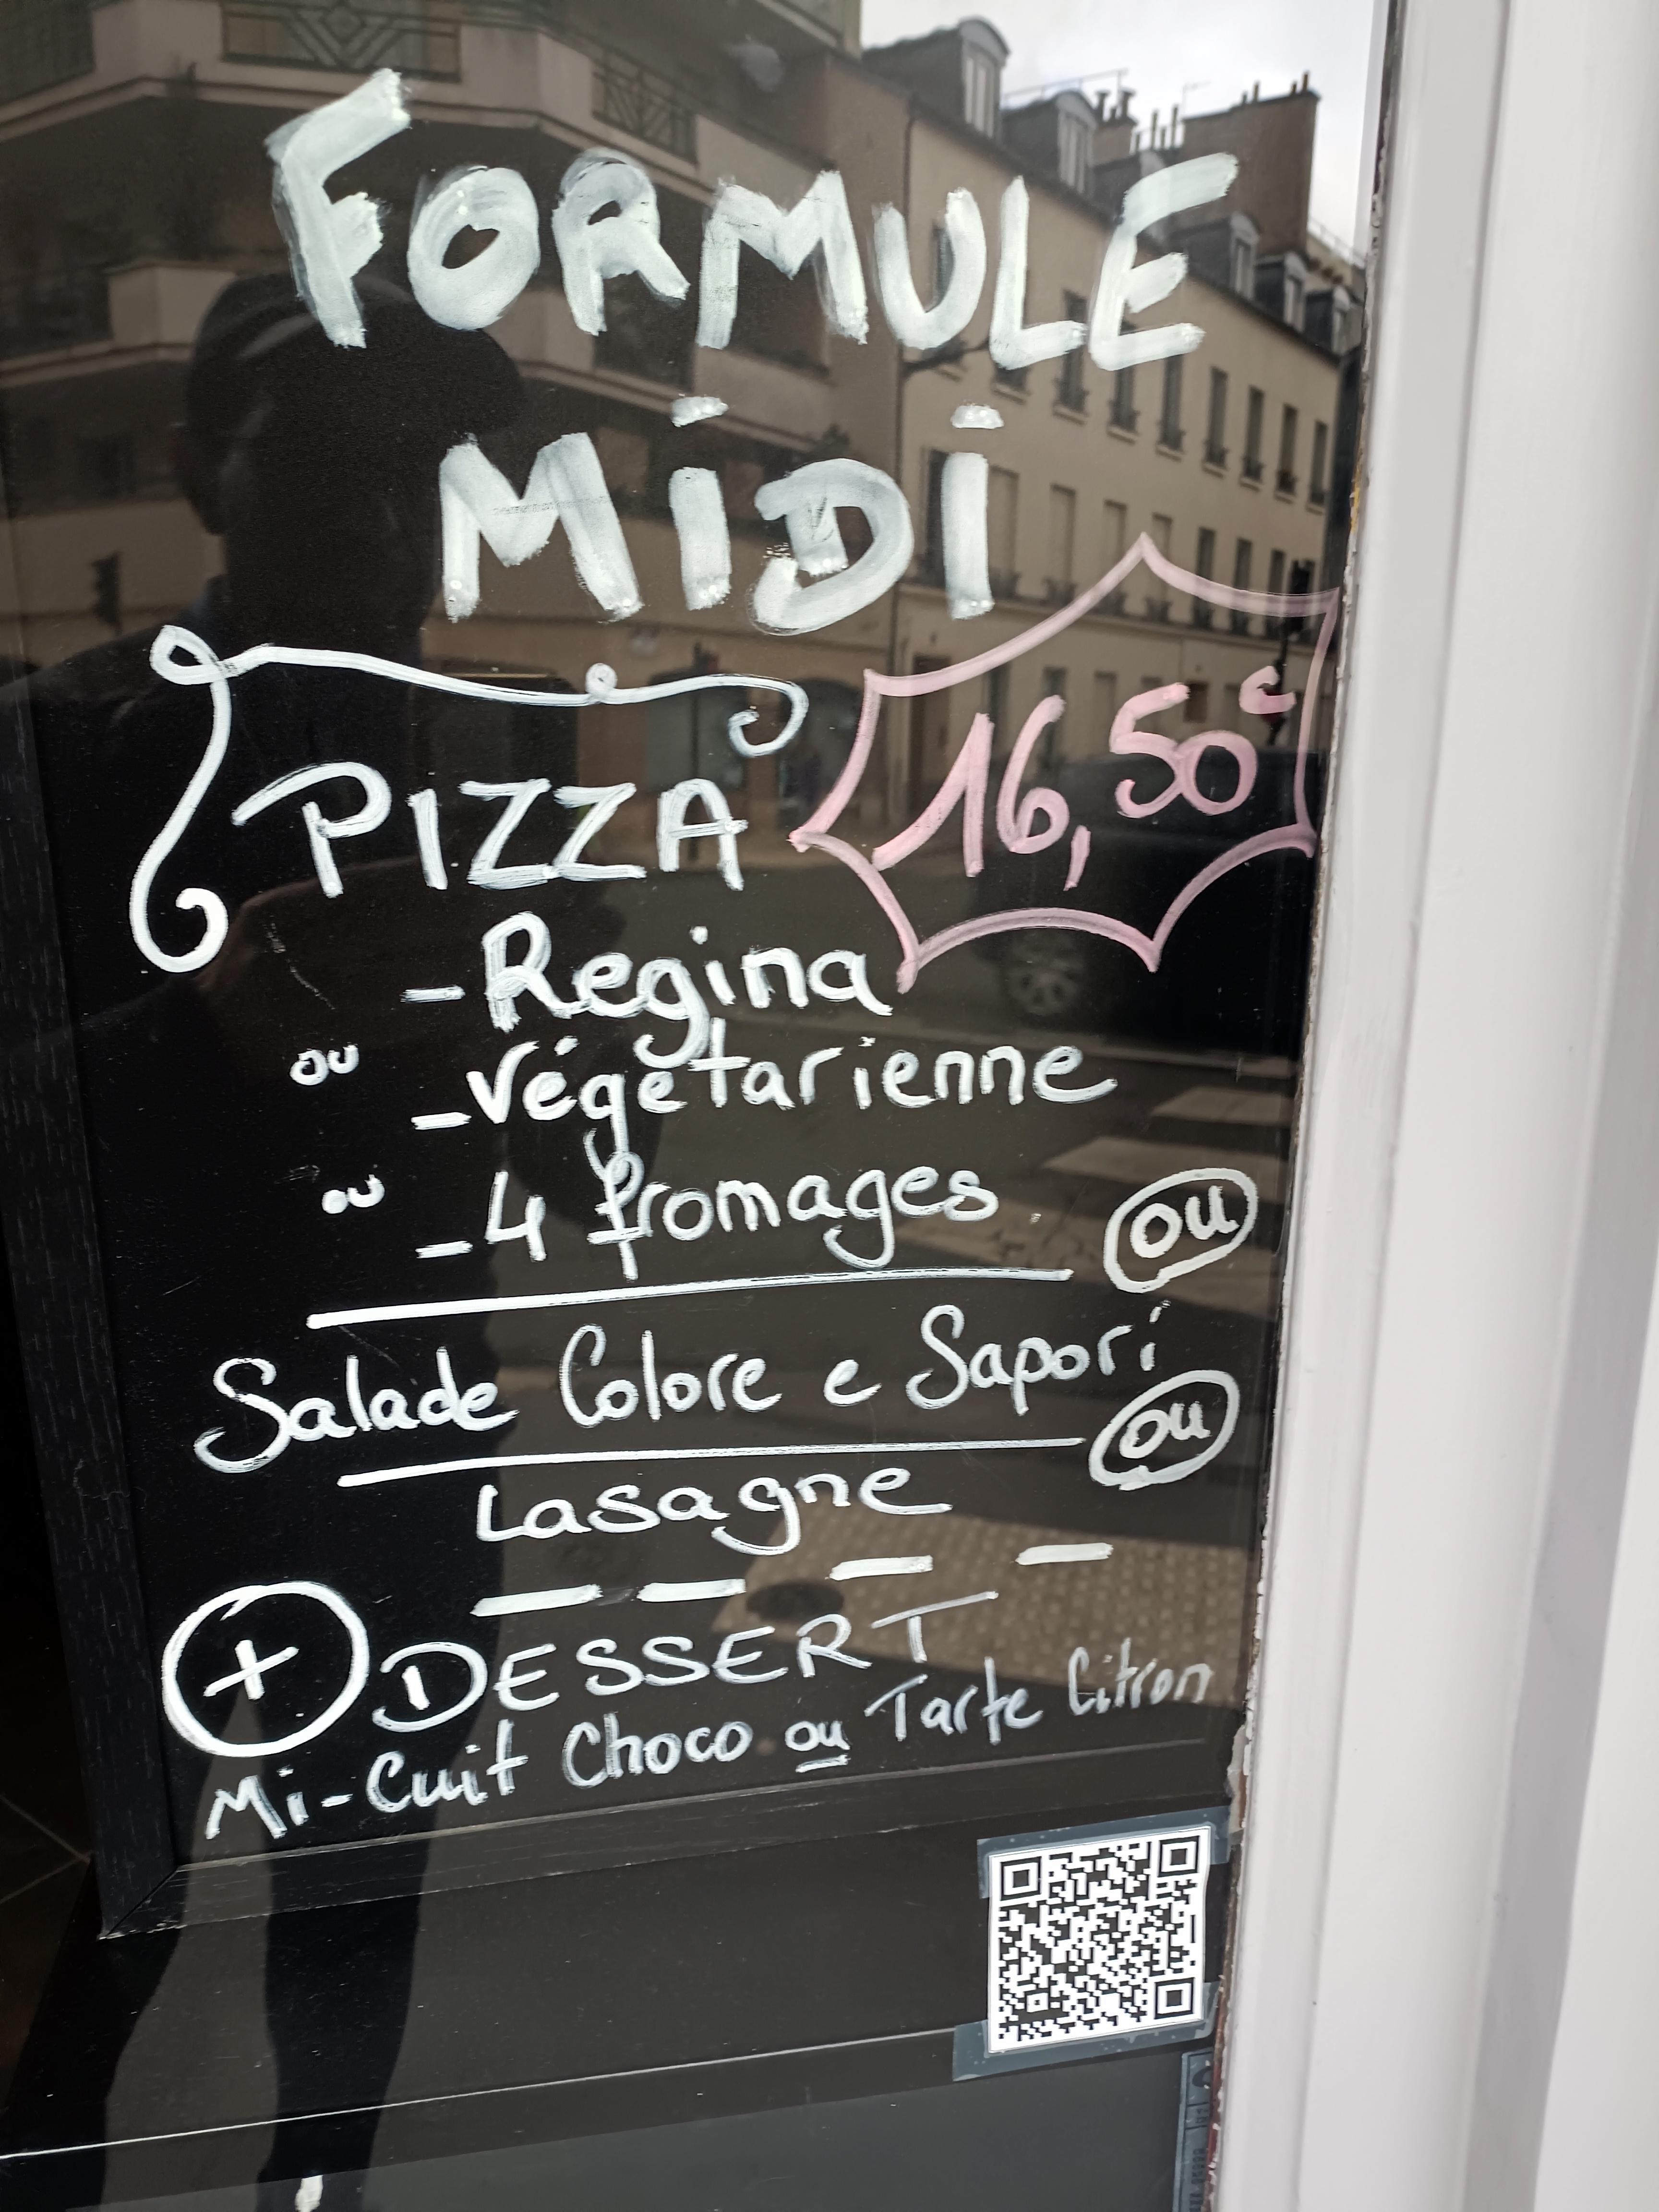 FORMULE
MiDi
16,50€
PIZZA
- Regina
ou
- Végétarienne
ou
- 4 fromages
ou
Salade Colore e Sapori
ou
Lasagne
+ DESSERT
Mi-Cuit Choco ou Tarte Citron